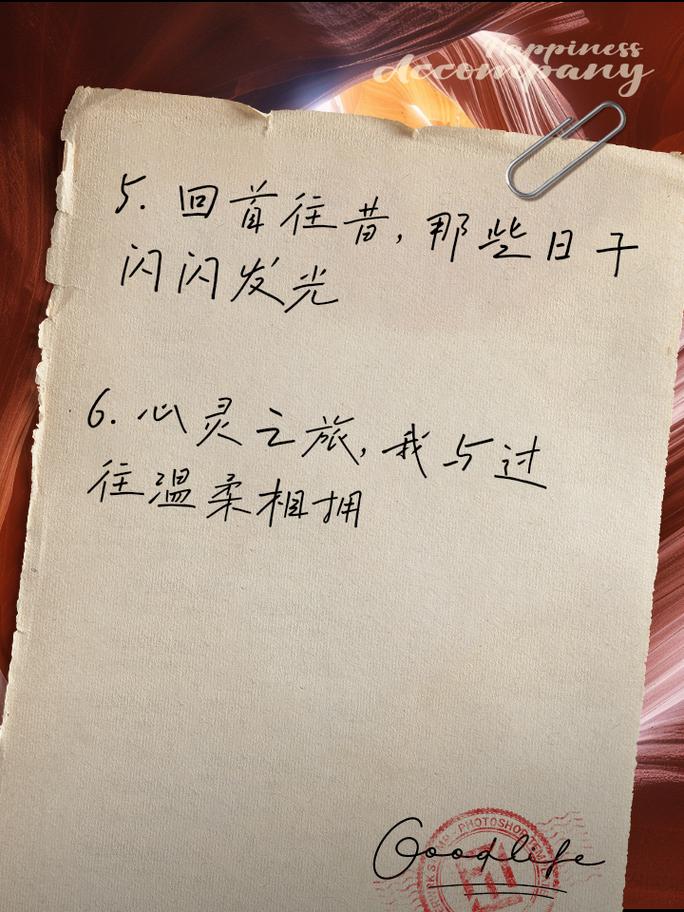 Happiness
Accompany
5. 回首往昔,那些日子
闪闪发光
6. 心灵之旅,我与过
往温柔相拥
PHOTOSHOP
Goodlife